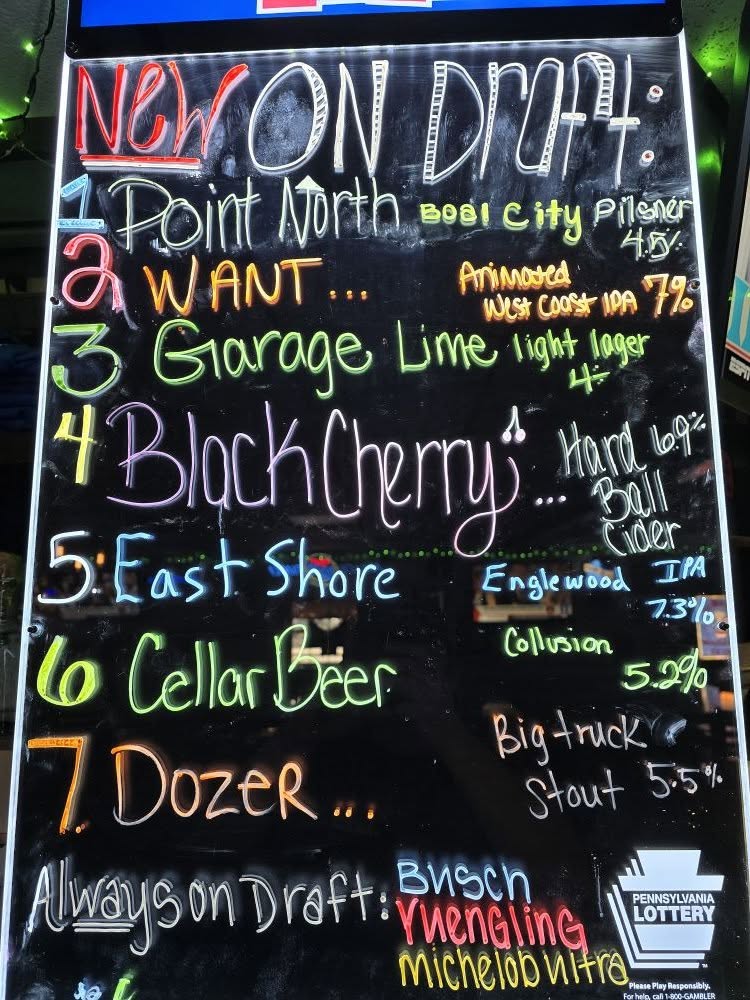 New ON Draft:
1 Point North Boal City Pilsner
4.5%
2 WANT... Animated
West Coast IPA 7%
3 Garage Lime light lager
4%
4 Black Cherry... Hard 6.9%
Ball
Cider
5. East Shore Englewood IPA
7.3%
6 Cellar Beer Collusion
5.2%
7. Dozer... Big truck
Stout 5.5%
Always on Draft: Busch
Yuengling
Michelob Ultra
PENNSYLVANIA
LOTTERY
Please Play Responsibly.
For help, call 1-800-GAMBLER